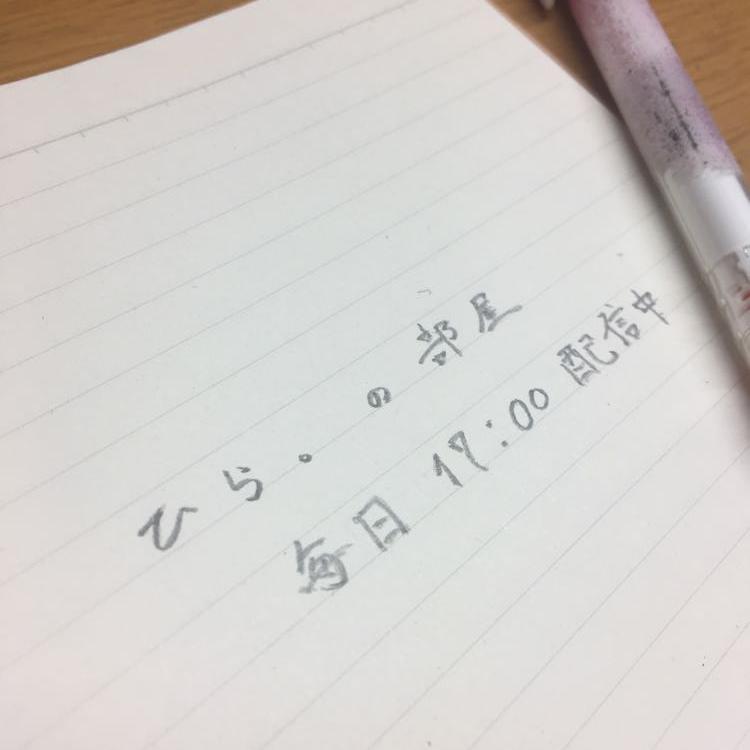 ひら。の部屋
毎日 17:00 配信中